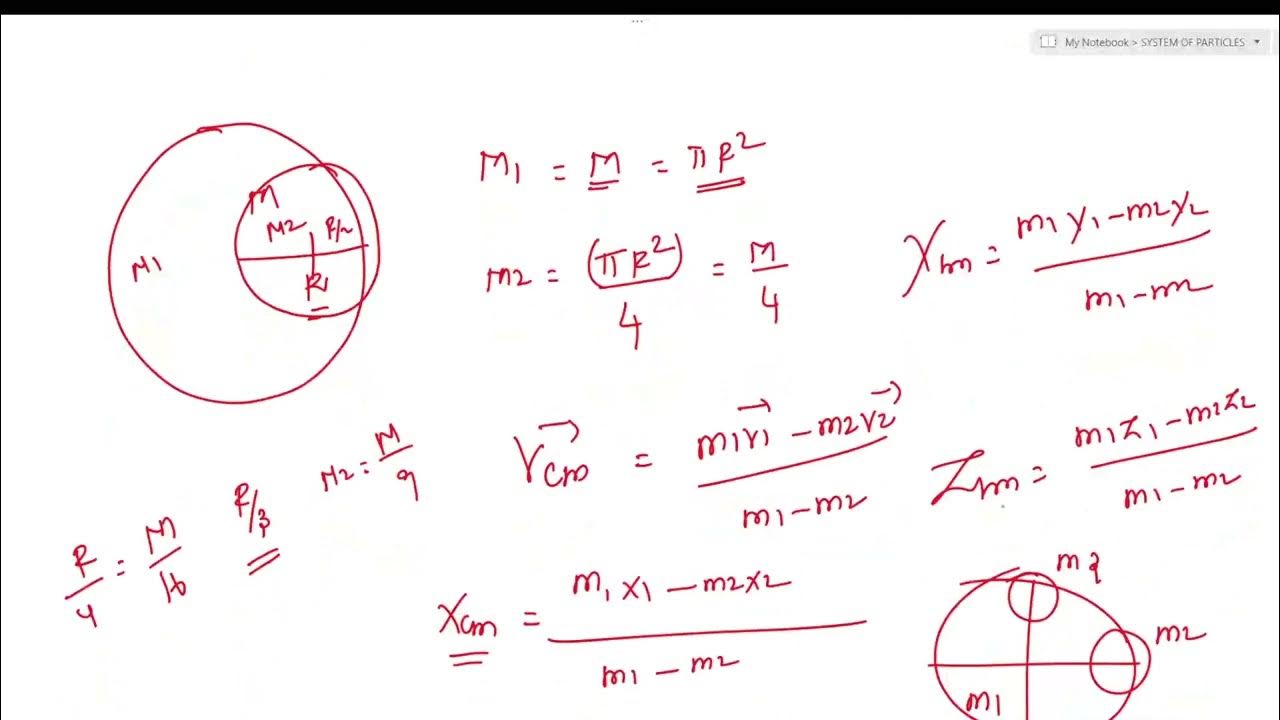 ...
My Notebook > SYSTEM OF PARTICLES
M1 = M = πR²
M
M2 R/2
M1
R
m2 = (πR²)/4 = M/4
Ym = (m1y1 - m2y2)/(m1 - m2)
M2 = M/9
R/3
R/4 = M/16
r⃗cm = (m1r⃗1 - m2r⃗2)/(m1 - m2)
Zm = (m1z1 - m2z2)/(m1 - m2)
Xcm = (m1x1 - m2x2)/(m1 - m2)
m3
m2
m1